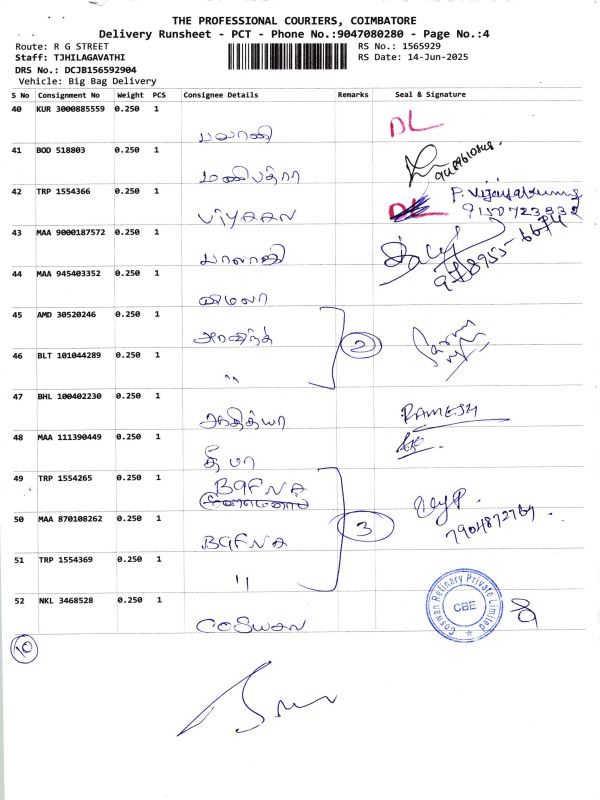 THE PROFESSIONAL COURIERS, COIMBATORE
Delivery Runsheet - PCT - Phone No.:9047080280 - Page No.:4
Route: R G STREET
Staff: TJHILAGAVATHI
DRS No.: DCJB156592904
Vehicle: Big Bag Delivery
RS No.: 1565929
RS Date: 14-Jun-2025
S No Consignment No Weight PCS Consignee Details Remarks Seal & Signature
40 KUR 3000885559 0.250 1
பலாஜி DL
41 BOD 518803 0.250 1
மணிபத்ரா
42 TRP 1554366 0.250 1
DL
9150723832
43 MAA 9000187572 0.250 1
பாலாஜி
44 MAA 945403352 0.250 1
விமலா
45 AMD 30520246 0.250 1
அரவிந்த் 2
46 BLT 101044289 0.250 1
"
47 BHL 100402230 0.250 1
ஆதித்யா RAMESH
48 MAA 111390449 0.250 1
தீபா
49 TRP 1554265 0.250 1
BGFNA
50 MAA 870108262 0.250 1
3
BGFNA
51 TRP 1554369 0.250 1
"
52 NKL 3468528 0.250 1
Coswan Refinary Private Limited
CBE
10